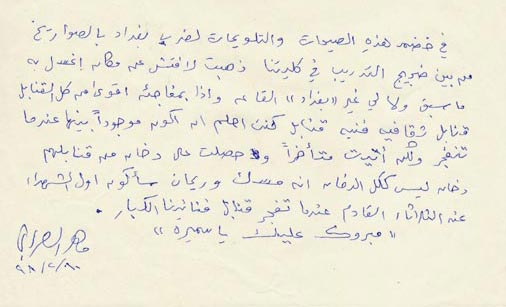 في خضم هذه الصيحات والتلويحات لضرب بغداد بالصواريخ
من بين ضجيج التدريب في كليتنا ذهبت لأفتش عن مكان اغسل به
ما سبق ولا لي غير «بغداد» القاعة وإذا بمفاجئة اقوى من كل القنابل
قنابل ثقافيه فنيه قنابل كنت احلم ان اكون موجوداً بينها عندما
تنفجر ولكن أتيت متأخراً وحصلت على دخان من قنابلهم
دخان ليس ككل الدخان انه مسك وريحان سأكون اول الشهداء
عند الثلاثاء القادم عندما تفجر قنابل فنانينا الكبار.
«مبروك عليك يا سميره»
ماهر
٩٨/٢/٢٠